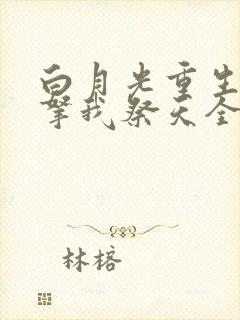 白月光重生
拏我祭天全
林榕